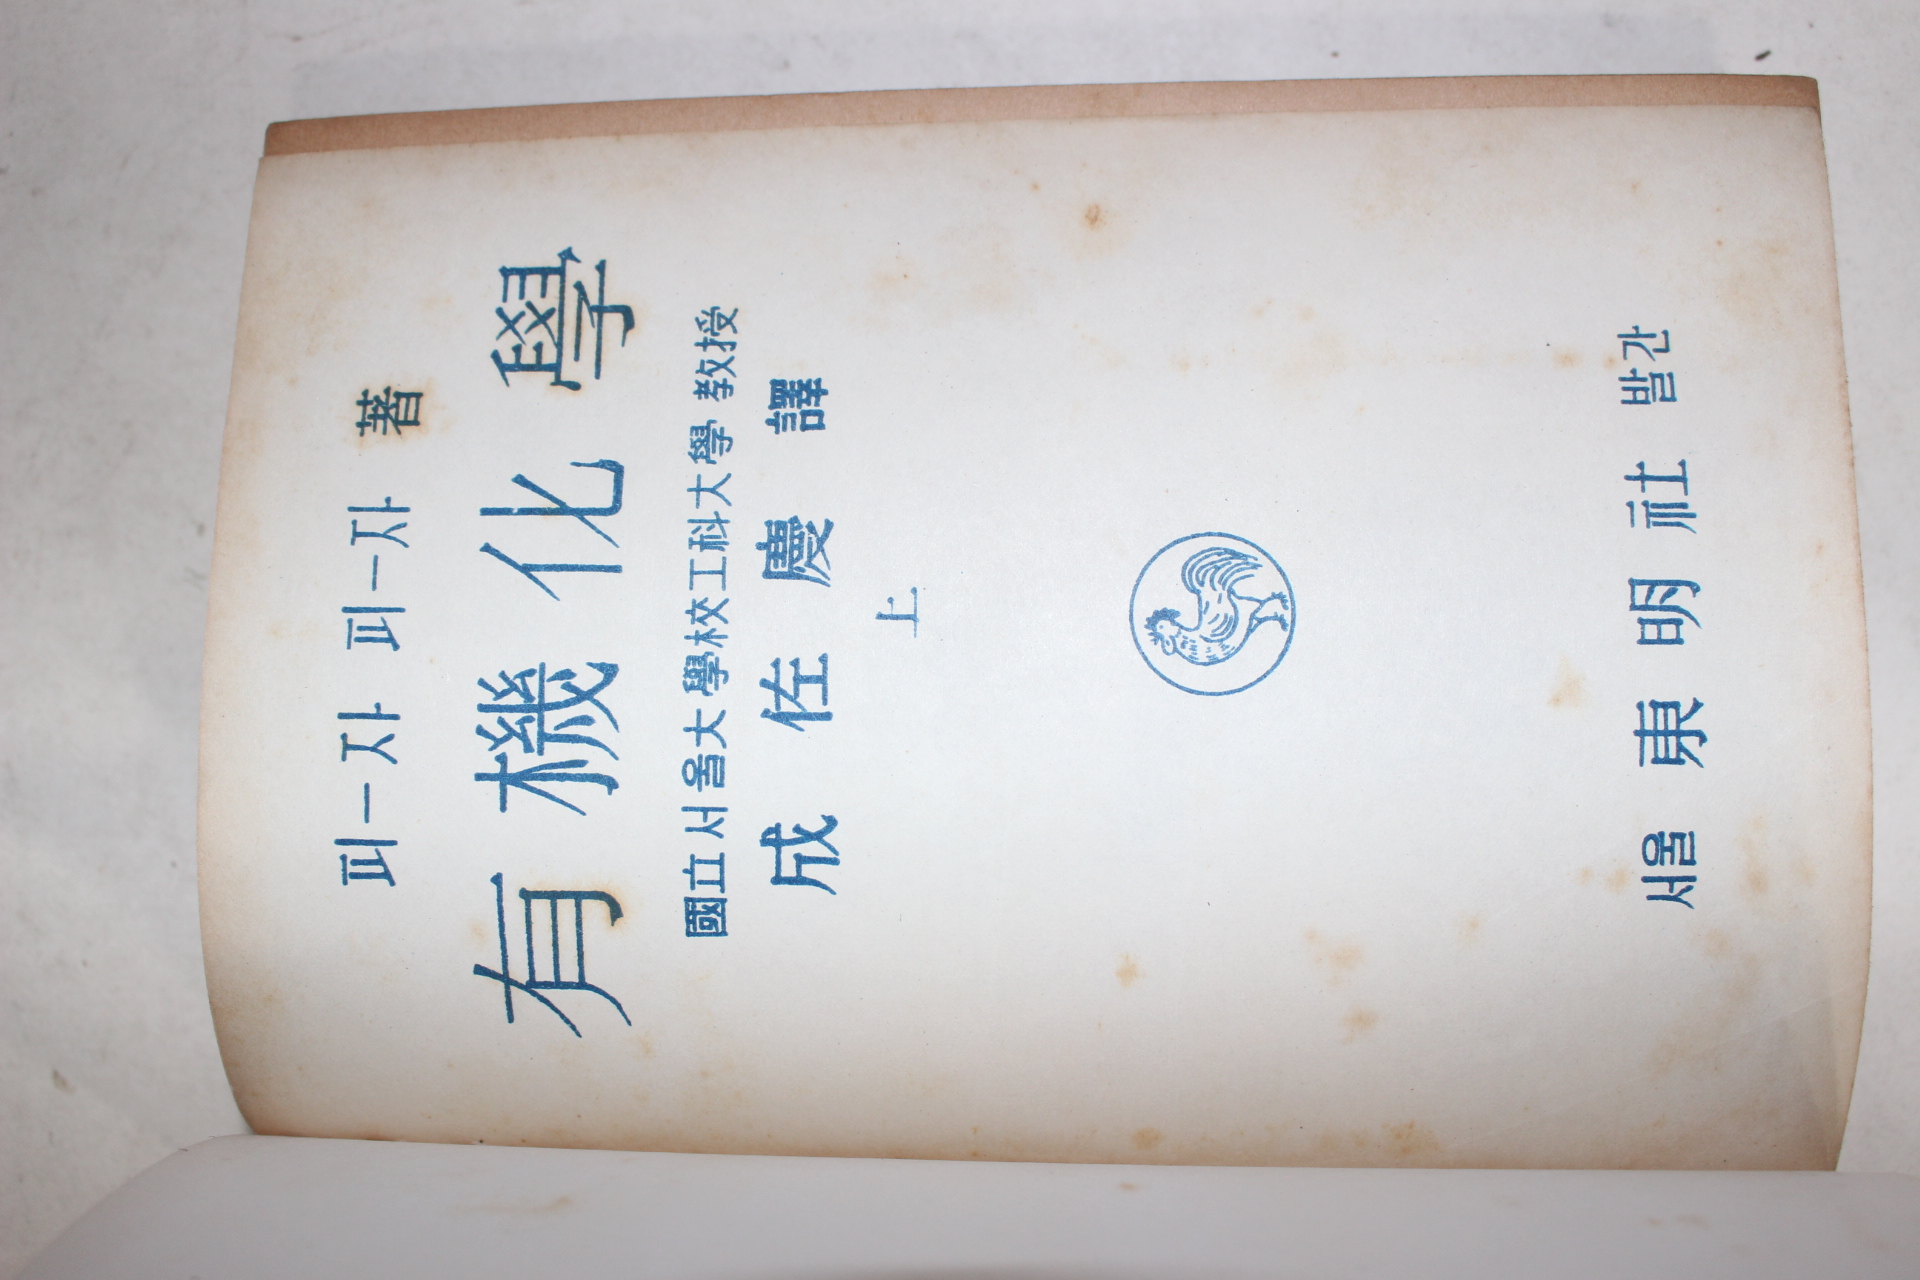 피ー자 피ー자 著
有機化學
國立서울大學校工科大學 敎授
成佐慶 譯
上
서울 東明社 발간